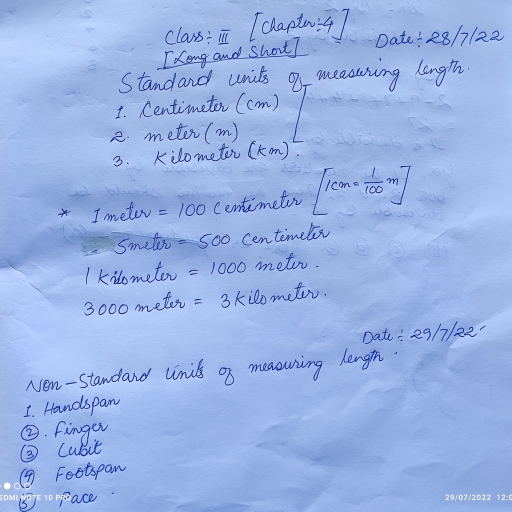 Class:- III [Chapter:-4]
Date:- 28/7/22
[Long and Short]
Standard units of measuring length.
1. Centimeter (cm)
2. meter (m)
3. Kilometer (km).
* 1 meter = 100 Centimeter [1cm = 1/100 m]
5 meter = 500 Centimeter
1 Kilometer = 1000 meter.
3000 meter = 3 Kilometer.
Date:- 29/7/22
Non-Standard Units of measuring length.
1. Handspan
2. Finger
3 Cubit
4 Footspan
5 Pace
REDMI NOTE 10 PRO
29/07/2022 12:0